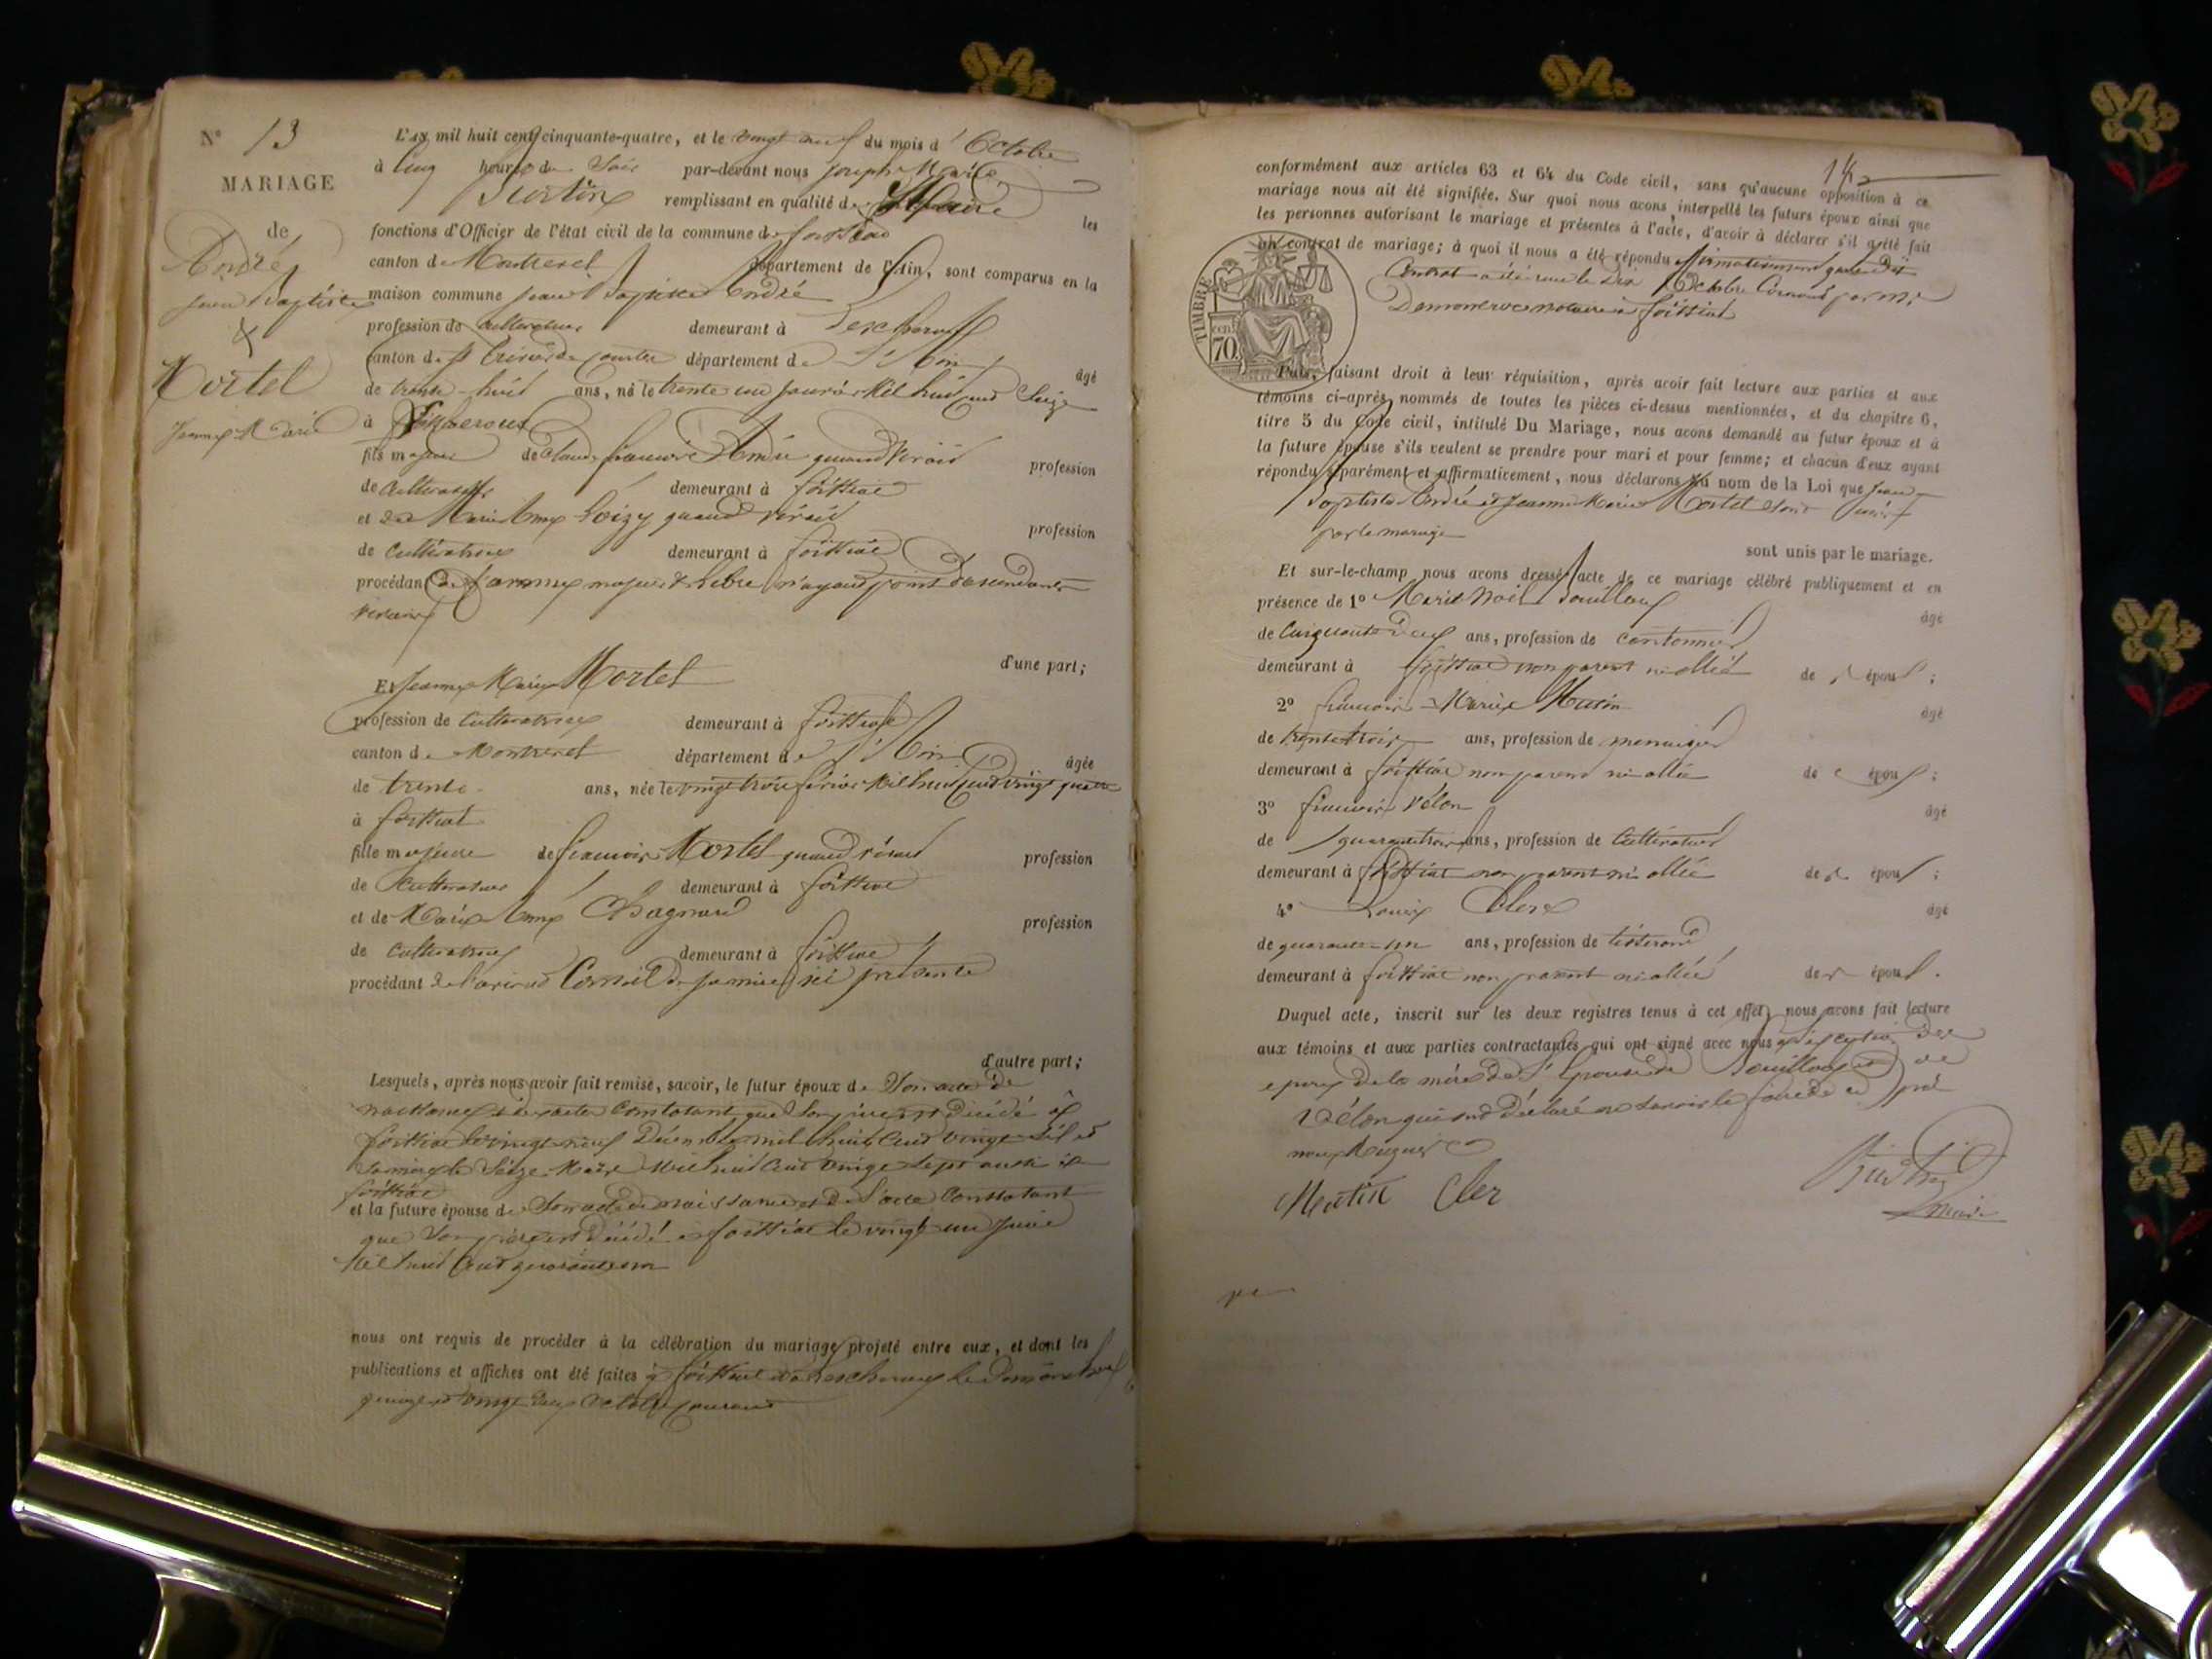 N° 13
MARIAGE
de
André
Jean Baptiste
&
Mortel
Jeanne Marie
L'an mil huit cent cinquante-quatre, et le vingt neuf du mois d' Octobre
à cinq heures du Soir par-devant nous Joseph Marie
remplissant en qualité de Maire les
fonctions d'Officier de l'état civil de la commune de foissiat
canton de Montrevel département de l'Ain, sont comparus en la
maison commune Jean Baptiste André
profession de cultivateur demeurant à Lescheroux
canton de St Trivier de Courtes département de l'Ain âgé
de trente-huit ans, né le trente un janvier Mil huit cent Seize
à
fils majeur de Claude françois André quand vivait profession
de Cultivateur demeurant à foissiat
et de Marie Anne Loizy quand vivait profession
de Cultivatrice demeurant à foissiat
procédant comme majeur & libre n'ayant point d'ascendants
d'une part;
Et Jeanne Marie Mortel
profession de Cultivatrice demeurant à foissiat
canton de Montrevel département de l'Ain âgée
de trente ans, née le vingt trois février Mil huit cent vingt quatre
à foissiat
fille majeure de françois Mortel quand vivait profession
de Cultivateur demeurant à foissiat
et de Marie Anne Chagnard profession
de Cultivatrice demeurant à foissiat
procédant de l'avis et Conseil de sa mère ici présente
d'autre part;
Lesquels, après nous avoir fait remise, savoir, le futur époux de Son acte de
naissance et des actes Constatant que Son père est décédé à
foissiat le vingt neuf Décembre mil huit Cent vingt Six et
Sa mère le Seize Mars Mil huit Cent vingt Sept aussi à
foissiat
et la future épouse de Son acte de naissance et de l'acte Constatant
que Son père est Décédé à foissiat le vingt un
Mil huit Cent quarante un
nous ont requis de procéder à la célébration du mariage projeté entre eux, et dont les
publications et affiches ont été faites à foissiat et à Lescheroux les Dimanches
quinze et vingt deux Octobre Courant
conformément aux articles 63 et 64 du Code civil, sans qu'aucune opposition à ce
mariage nous ait été signifiée. Sur quoi nous avons interpellé les futurs époux ainsi que
les personnes autorisant le mariage et présentes à l'acte, d'avoir à déclarer s'il a été fait
un contrat de mariage; à quoi il nous a été répondu affirmativement que le dit
Contrat a été reçu le Dix Octobre Courant par Me
notaire à foissiat
TIMBRE
70 cent
Puis, faisant droit à leur réquisition, après avoir fait lecture aux parties et aux
témoins ci-après nommés de toutes les pièces ci-dessus mentionnées, et du chapitre 6,
titre 5 du Code civil, intitulé Du Mariage, nous avons demandé au futur époux et à
la future épouse s'ils veulent se prendre pour mari et pour femme; et chacun d'eux ayant
répondu séparément et affirmativement, nous déclarons au nom de la Loi que Jean
Baptiste André et Jeanne Marie Mortel sont unis
par le mariage
sont unis par le mariage.
Et sur-le-champ nous avons dressé acte de ce mariage célébré publiquement et en
présence de 1° Marie Noël Bouilloux âgé
de Cinquante deux ans, profession de cantonnier
demeurant à foissiat non parent ni allié des époux;
2° françois Marie âgé
de trente trois ans, profession de menuisier
demeurant à foissiat non parent ni allié des époux;
3° françois Vélon âgé
de quarante trois ans, profession de Cultivateur
demeurant à foissiat non parent ni allié des époux;
4° Louis Clerc âgé
de quarante un ans, profession de tisserand
demeurant à foissiat non parent ni allié des époux.
Duquel acte, inscrit sur les deux registres tenus à cet effet, nous avons fait lecture
aux témoins et aux parties contractantes qui ont signé avec nous à l'exception des
époux de la mère de l'épouse de Bouilloux et de
Vélon qui ont déclaré ne savoir le faire de ce
requis
Clerc
Maire